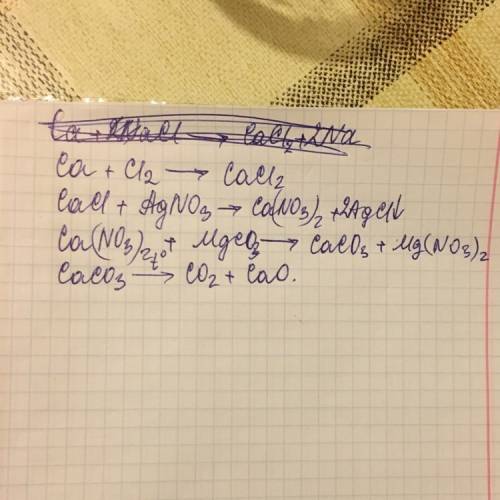 Ca + 2NaCl → CaCl₂ + 2Na
Ca + Cl₂ → CaCl₂
CaCl + AgNO₃ → Ca(NO₃)₂ + 2AgCl↓
Ca(NO₃)₂ + MgCO₃ → CaCO₃ + Mg(NO₃)₂
CaCO₃ t° → CO₂ + CaO.